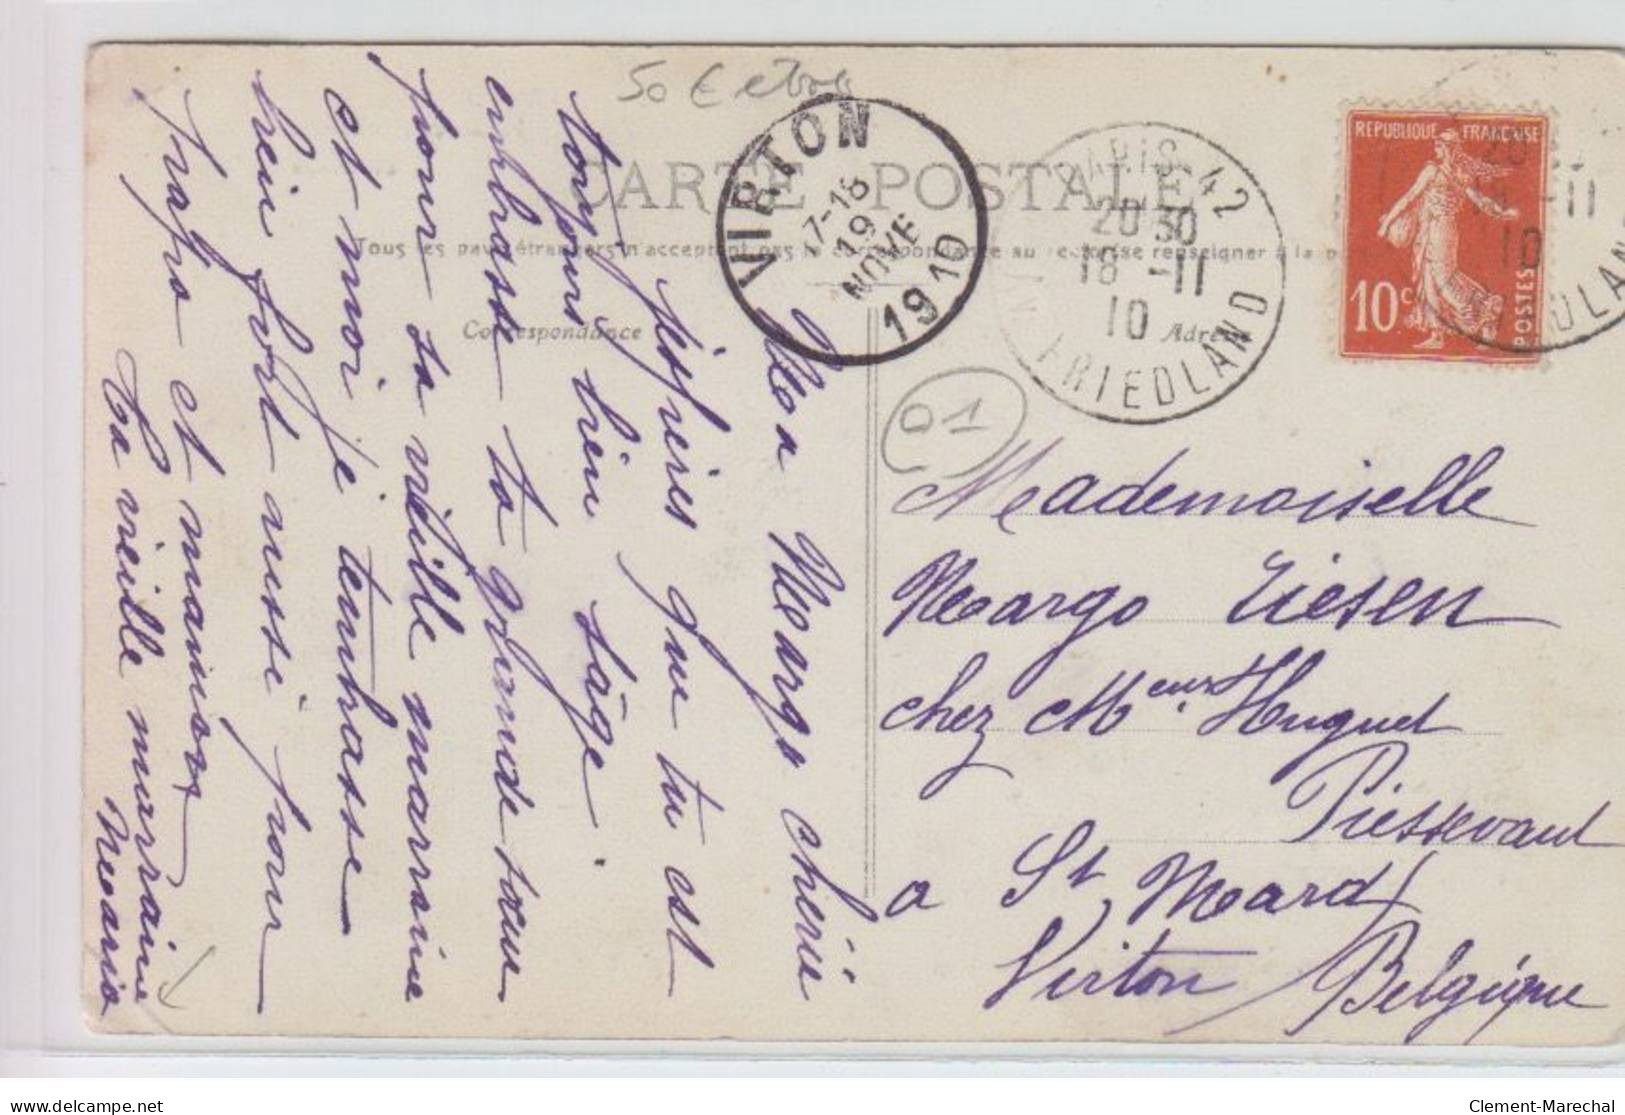 50 € 
CARTE POSTALE
Tous les pays étrangers n'acceptent pas la correspondance au recto se renseigner à la p
Correspondance
Adresse
VIRTON
17-18
19
NOVE
1910
PARIS-42
20 30
18 -11
10
FRIEDLAND
REPUBLIQUE FRANÇAISE
10 c
POSTES
20
-11
10
DLAN
D1
Ma Margo chérie
j'espères que tu est
toujours bien sage
embrasse ta grande sœur
pour sa vieille marraine
et moi je t'embrasse
bien fort aussi pour
papa et maman
Ta vieille marraine
Maria
Mademoiselle
Margo Tiesen
chez Mr Huguet
Piessevaut
a St Mard
Virton / Belgique
Clement-Marechal